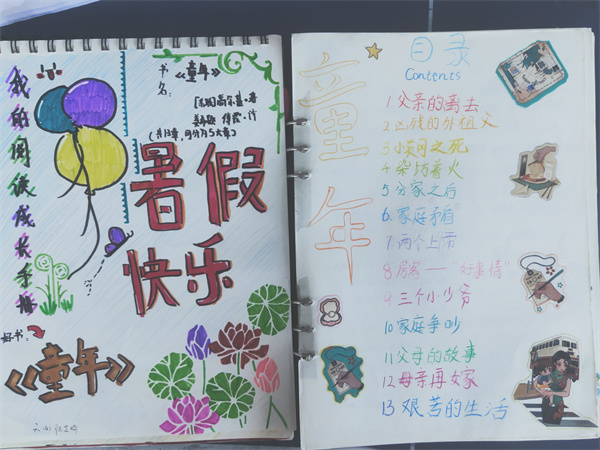 我的阅读成长手册
书名：《童年》
[苏联]高尔基·著
(共13章，可分为5大章)
暑假
快乐
好书：
《童年》
童年
目录
Contents
1 父亲的离去
2 凶残的外祖父
3 小茨冈之死
4 染坊着火
5 分家之后
6 家庭矛盾
7 两个上帝
8 房客——“好事情”
9 三个小少爷
10 家庭争吵
11 父母的故事
12 母亲再嫁
13 艰苦的生活